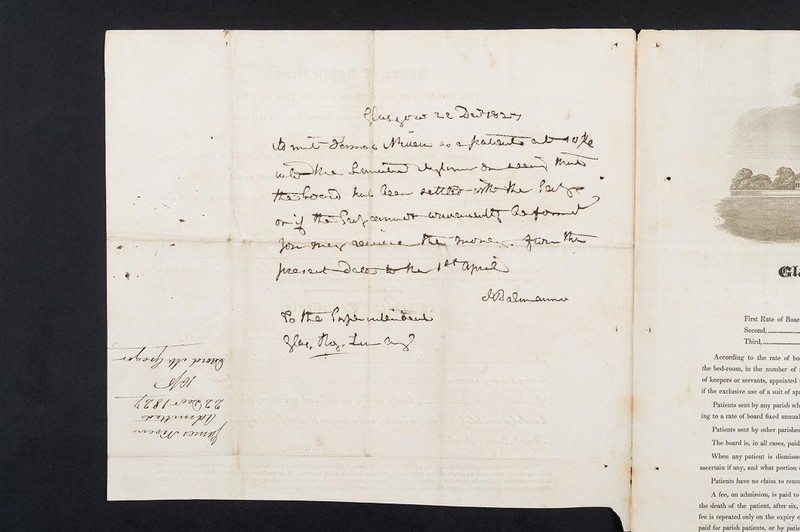 Glasgow 22 Decr 1827
Admit James Niven as a patient at 10/6
into the Lunatic Asylum on seeing that
the board has been settled with the
or if the cannot conveniently be found
you may receive the money from the
present date to the 1st April
J Balmanno
To the Superintendent
Glas. Roy. Lun Asy
James Niven
Admitted
22 Decr 1827
10/6
First Rate of Boar
Second,
Third,
According to the rate of bo
the bed-room, in the number of
of keepers or servants, appointed
if the exclusive use of a suit of ap
Patients sent by any parish wh
ing to a rate of board fixed annual
Patients sent by other parishes
The board is, in all cases, paid
When any patient is dismisse
ascertain if any, and what portion
Patients have no claim to remo
A fee, on admission, is paid to
the death of the patient, after six,
fee is repeated only on the expiry
paid for parish patients, or by patie